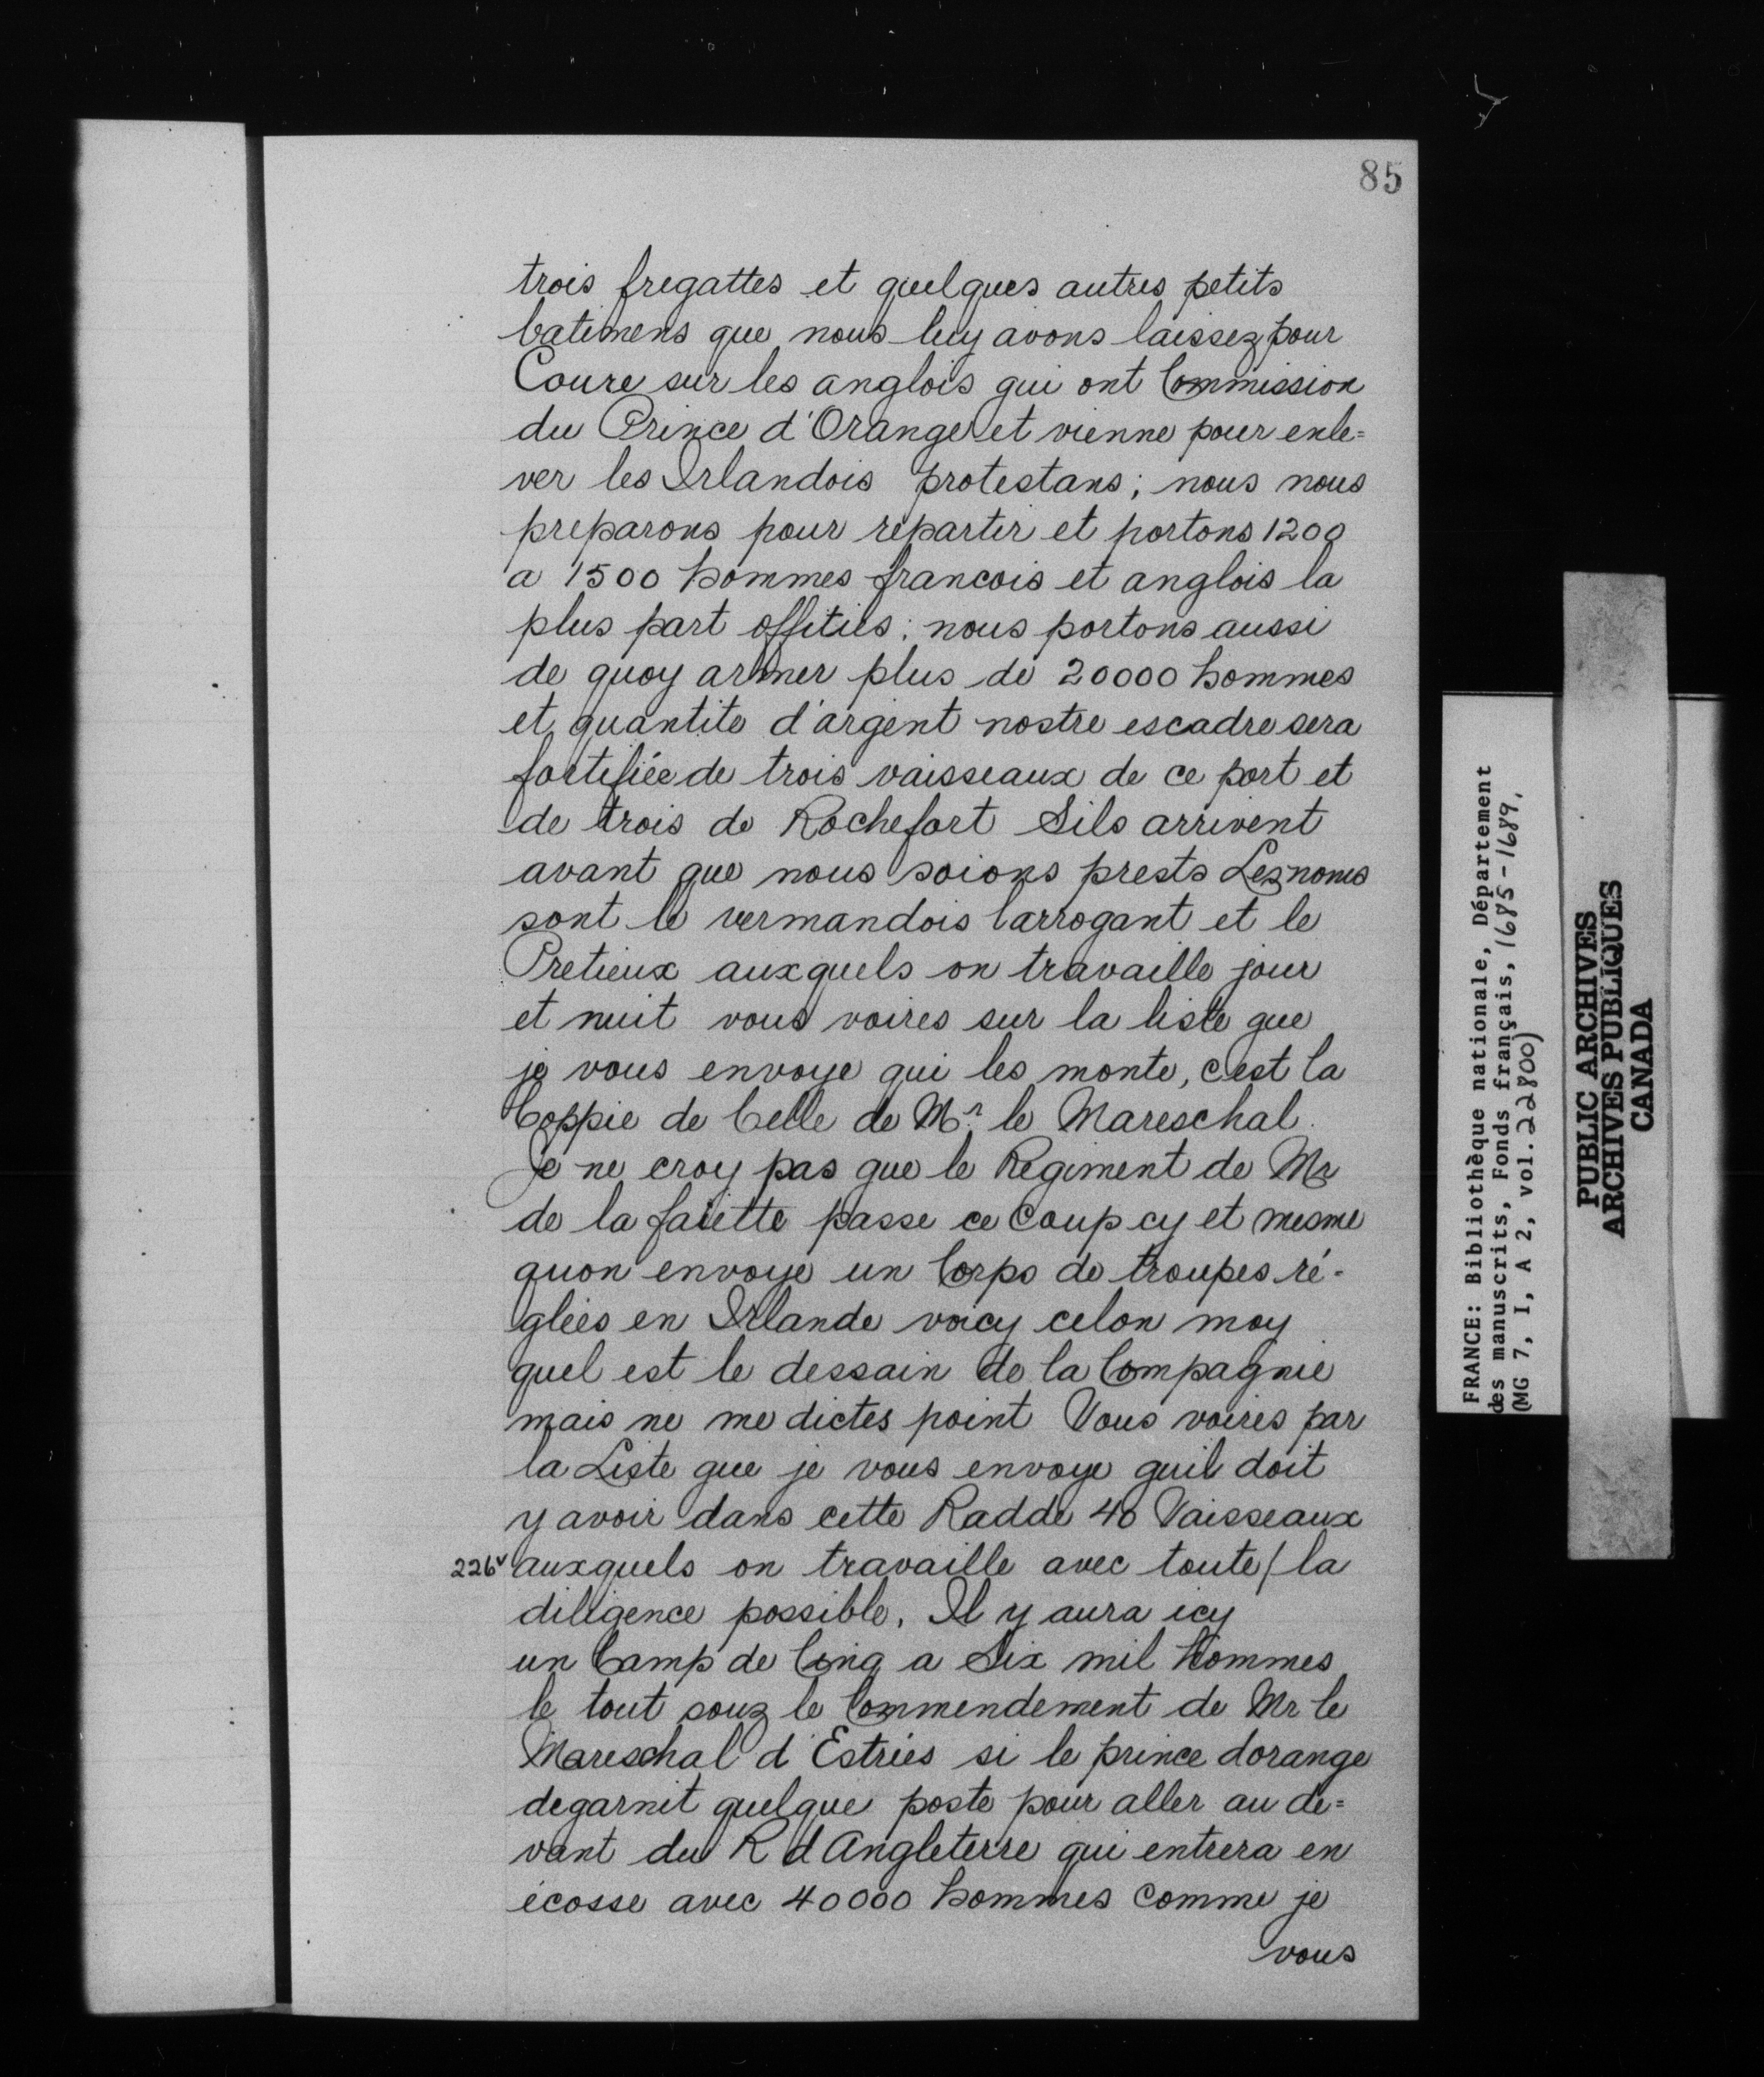 85
trois fregattes et quelques autres petits
batimens que nous luy avons laissez pour
Coure sur les anglois qui ont Commission
du Prince d'Orange et vienne pour enle=
ver les Irlandois protestans; nous nous
preparons pour repartir et portons 1200
a 1500 hommes francois et anglois la
plus part offitiés; nous portons aussi
de quoy armer plus de 20000 hommes
et quantite d'argent nostre escadre sera
fortifiée de trois vaisseaux de ce port et
de trois de Rochefort Sils arrivent
avant que nous soions prests Les noms
sont le vermandois larrogant et le
Pretieux auxquels on travaille jour
et nuit vous voires sur la liste que
je vous envoye qui les monte, c'est la
Coppie de Celle de Mr. le Mareschal.
Je ne croy pas que le Regiment de Mr
de la faiette passe ce Coup cy et mesme
quon envoye un Corps de troupes ré-
glées en Irlande voicy celon moy
quel est le dessain de la Compagnie
mais ne me dictes point Vous voires par
la Liste que je vous envoye quil doit
y avoir dans cette Radde 40 Vaisseaux
226v auxquels on travaille avec toute / la
diligence possible. Il y aura icy
un Camp de Cinq a Six mil hommes
le tout souz le Commendement de Mr le
Mareschal d'Estrées si le prince dorange
degarnit quelque poste pour aller au de=
vant du R d Angleterre qui entrera en
écosse avec 40000 hommes comme je
vous
FRANCE: Bibliothèque nationale, Département
des manuscrits, Fonds français, 1685-1689.
(MG 7, I, A 2, vol. 22800)
PUBLIC ARCHIVES
ARCHIVES PUBLIQUES
CANADA